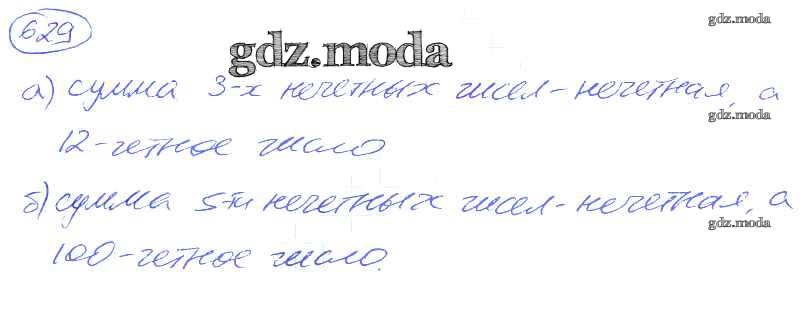 629
gdz.moda
gdz.moda
а) сумма 3-х нечетных чисел - нечетная, а
gdz.moda
12 - четное число
б) сумма 5-ти нечетных чисел - нечетная, а
gdz.moda
100 - четное число.